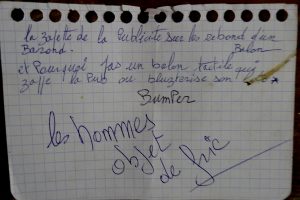 la zapete de la Publicité sur les rebond d'un
Bazond. Balon
et Pourquoi pas un balon textile qui
zappe la Pub ou blusterise son
Bumper
les hommes
objet
de fric